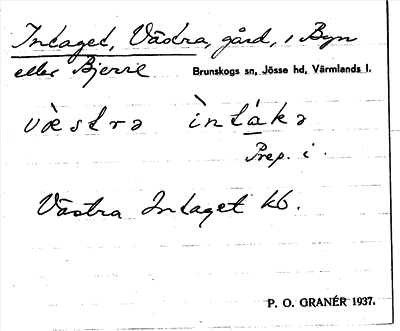 Intaget, Västra, gård, i Byn
eller Bjerre Brunskogs sn, Jösse hd, Värmlands l.
væ̀strə ìntákə
Prep. i.
Västra Intaget kb.
P. O. GRANÉR 1937.